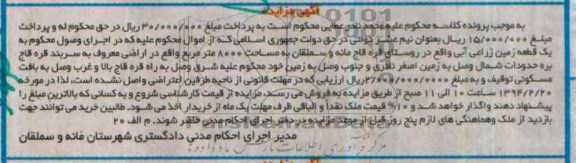 آگهی مزایده
به موجب پرونده کلاسه محکوم علیه محمد نادر بهایی محکوم است به پرداخت مبلغ ۳۰/۰۰۰/۰۰۰ ریال در حق محکوم له و پرداخت
مبلغ ۱۵/۰۰۰/۰۰۰ ریال بعنوان نیم عشر دولتی در حق دولت جمهوری اسلامی که از اموال محکوم علیه که در اجرای وصول محکوم به
یک قطعه زمین زراعی آبی واقع در روستای قره قاج مانه و سملقان به مساحت ۸۰۰۰ متر مربع واقع در اراضی معروف به سربند قره قاج
بره حدودات شمال وصل به زمین اصغر نادری و جنوب وصل به زمین خود محکوم علیه شرق وصل به راه قره قاج بالا و غرب وصل به بافت
مسکونی توقیف و به مبلغ ریال ارزیابی که در مهلت قانونی از ناحیه طرفین اعتراضی واصل نشده است، لذا در مورخه
۱۳۹۴/۲/۲۰ ساعت ۱۰ الی ۱۱ صبح از طریق مزایده به فروش می رسد، مزایده از قیمت کارشناسی شروع و به کسانی که بالاترین مبلغ را
پیشنهاد دهند واگذار خواهد شد و ۱۰% قیمت ملک نقداً و الباقی ظرف مهلت یک ماه از خریدار اخذ می شود. طالبین خرید می توانند جهت
بازدید از ملک وهماهنگی های لازم پنج روز قبل از موعد مزایده در دفتر اجرای احکام مدنی حاضر شوند. م الف ۲۰
مدیر اجرای احکام مدنی دادگستری شهرستان مانه و سملقان